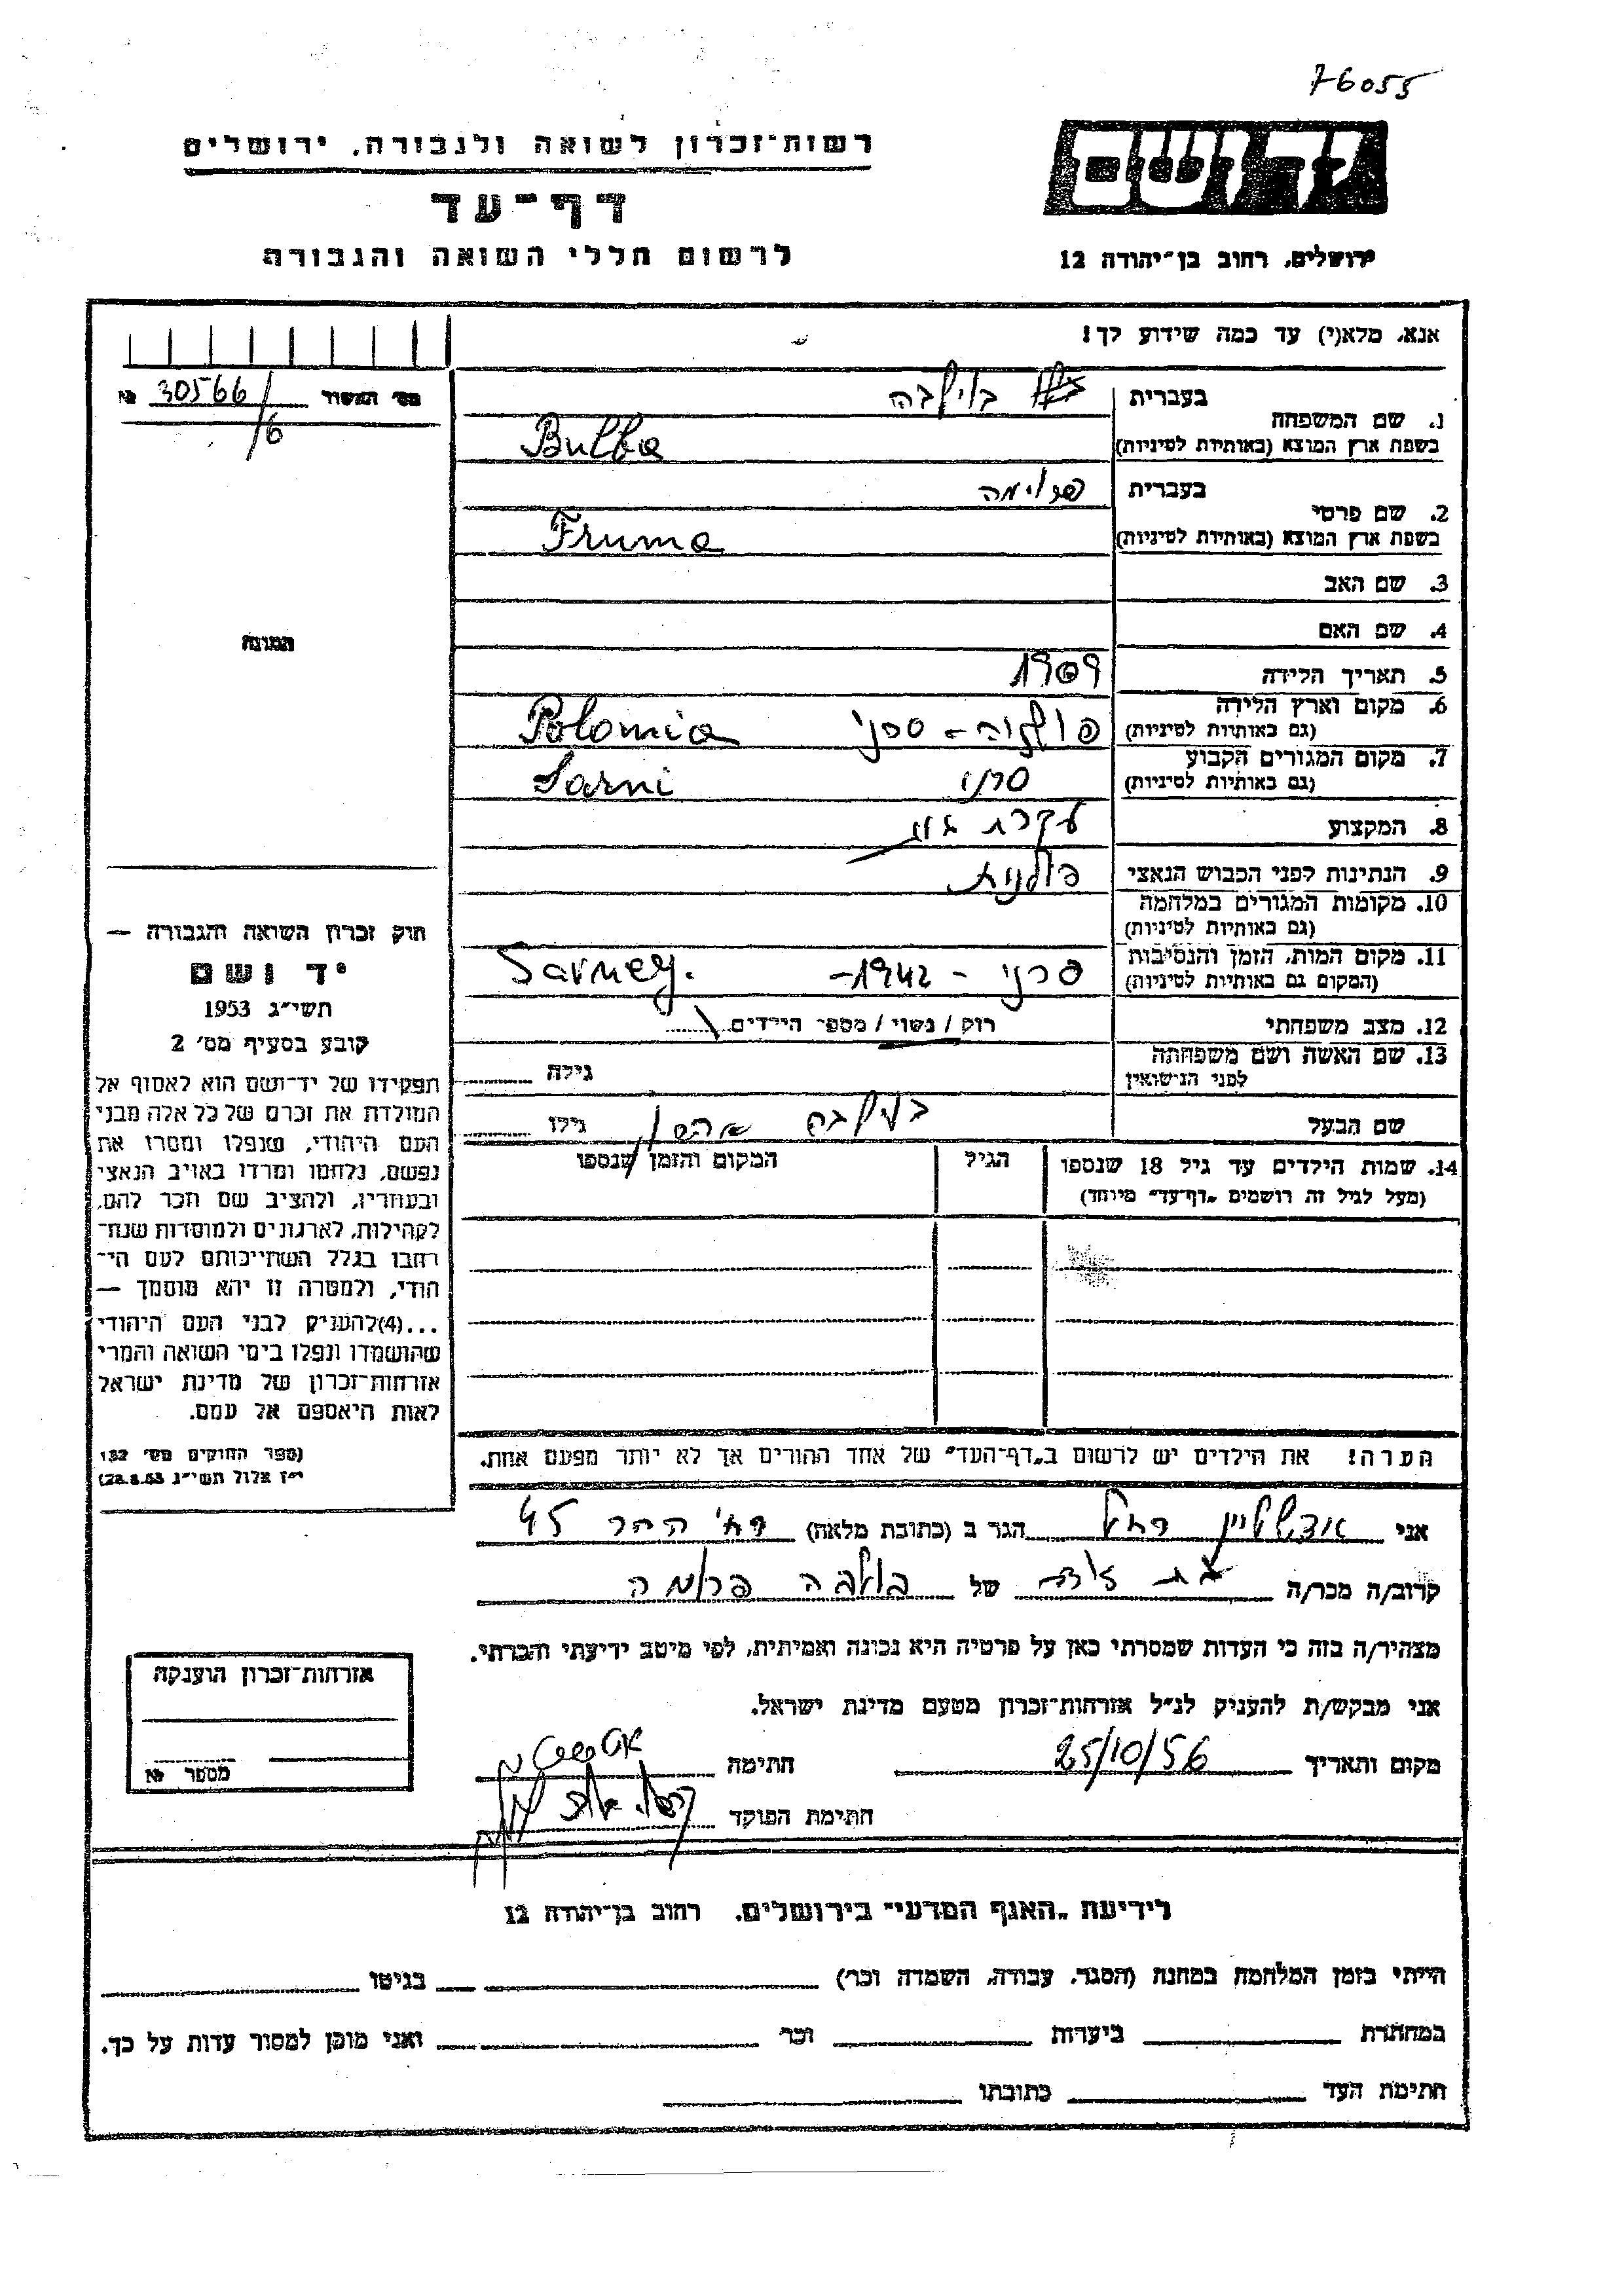 76055
יד ושם
רשות־זכרון לשואה ולגבורה, ירושלים
דף־עד
לרשום חללי השואה והגבורה
ירושלים, רחוב בן־יהודה 12
אנא, מלא(י) עד כמה שידוע לך!
מס׳ האסור 30566/6 №
1. שם המשפחה
בעברית בולבה
בשפת ארץ המוצא (באותיות לטיניות) Bulba
2. שם פרטי
בעברית פרומה
בשפת ארץ המוצא (באותיות לטיניות) Fruma
3. שם האב
4. שם האם
5. תאריך הלידה 1909
6. מקום וארץ הלידה
(גם באותיות לטיניות) פולניה - סרני Polonia
7. מקום המגורים הקבוע
(גם באותיות לטיניות) סרני Sarni
8. המקצוע עקרת בית
9. הנתינות לפני הכבוש הנאצי פולנית
10. מקומות המגורים במלחמה
(גם באותיות לטיניות)
11. מקום המות, הזמן והנסיבות
(המקום גם באותיות לטיניות) סרני - 1942- Sarney.
12. מצב משפחתי רוק / נשוי / מספר הילדים
13. שם האשה ושם משפחתה
לפני הנישואין גילה
שם הבעל בולבה אהרון גילו
14. שמות הילדים עד גיל 18 שנספו הגיל המקום והזמן שנספו
(מעל לגיל זה רושמים „דף־עד״ מיוחד)
הערה! את הילדים יש לרשום ב„דף־העד״ של אחד ההורים אך לא יותר מפעם אחת.
תמונה
חוק זכרון השואה והגבורה —
יד ושם
תשי״ג 1953
קובע בסעיף מס׳ 2
תפקידו של יד־ושם הוא לאסוף אל
המולדת את זכרם של כל אלה מבני
העם היהודי, שנפלו ומסרו את
נפשם, נלחמו ומרדו באויב הנאצי
ובעוזריו, ולהציב שם וזכר להם,
לקהילות, לארגונים ולמוסדות שנח־
רבו בגלל השתייכותם לעם הי־
הודי, ולמטרה זו יהא מוסמך —
...(4)להעניק לבני העם היהודי
שהושמדו ונפלו בימי השואה והמרי
אזרחות־זכרון של מדינת ישראל
לאות היאספם אל עמם.
(ספר החוקים מס׳ 132
י״ז אלול תשי״ג 28.8.53)
אני רחל הגר ב (כתובת מלאה) רח׳ ההר 45
קרוב/ה מכר/ה בת דודה של בולבה פרומה
מצהיר/ה בזה כי העדות שמסרתי כאן על פרטיה היא נכונה ואמיתית, לפי מיטב ידיעתי והכרתי.
אני מבקש/ת להעניק לנ״ל אזרחות־זכרון מטעם מדינת ישראל.
מקום ותאריך 25/10/56 חתימה
חתימת הפוקד
אזרחות־זכרון הוענקה
מספר №
לידיעת „האגף המדעי״ בירושלים. רחוב בן־יהודה 12
הייתי בזמן המלחמה במחנה (הסגר, עבודה, השמדה וכר) בגיטו
במחתרת ביערות וכר ואני מוכן למסור עדות על כך.
חתימת העד כתובתו